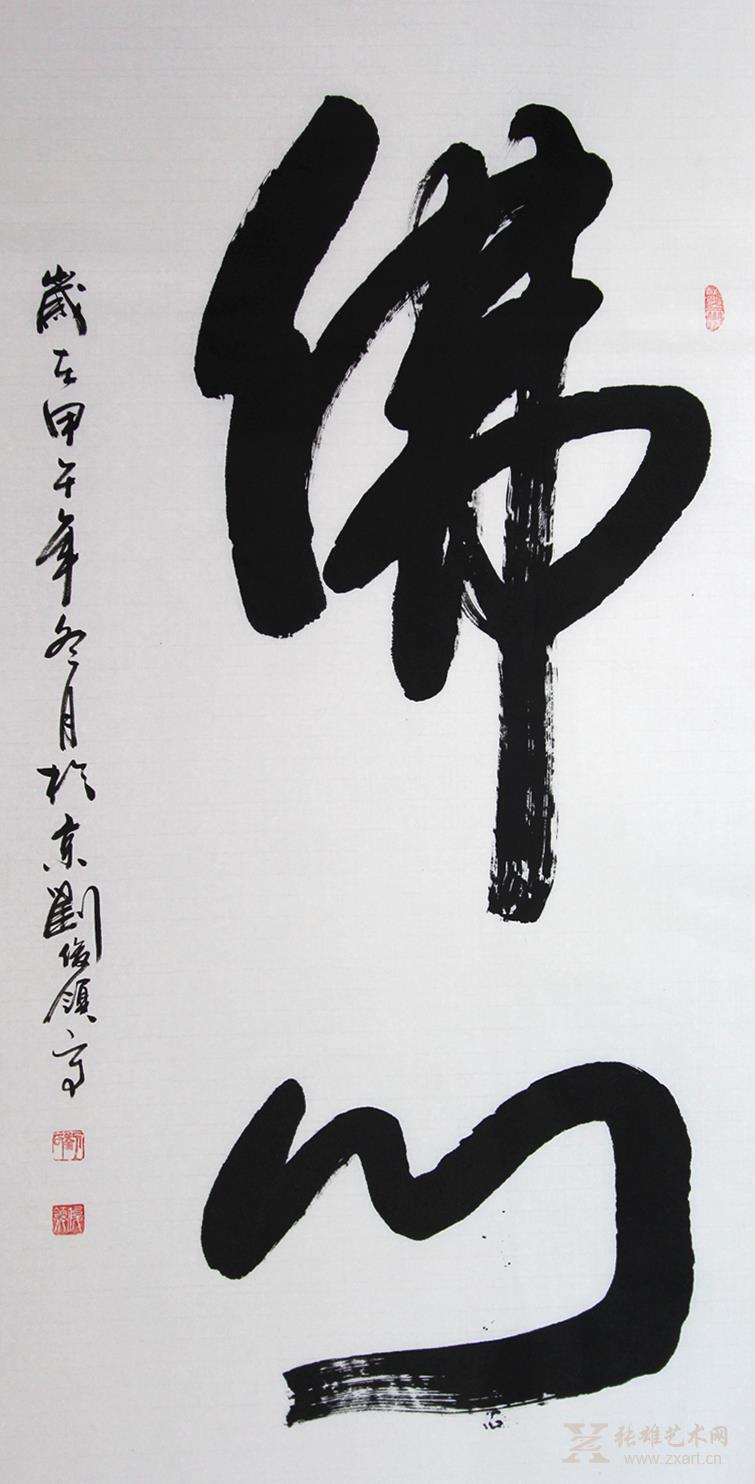 佛
歲在甲午年冬月於京劉俊領寫
张雄艺术网
www.zxart.cn